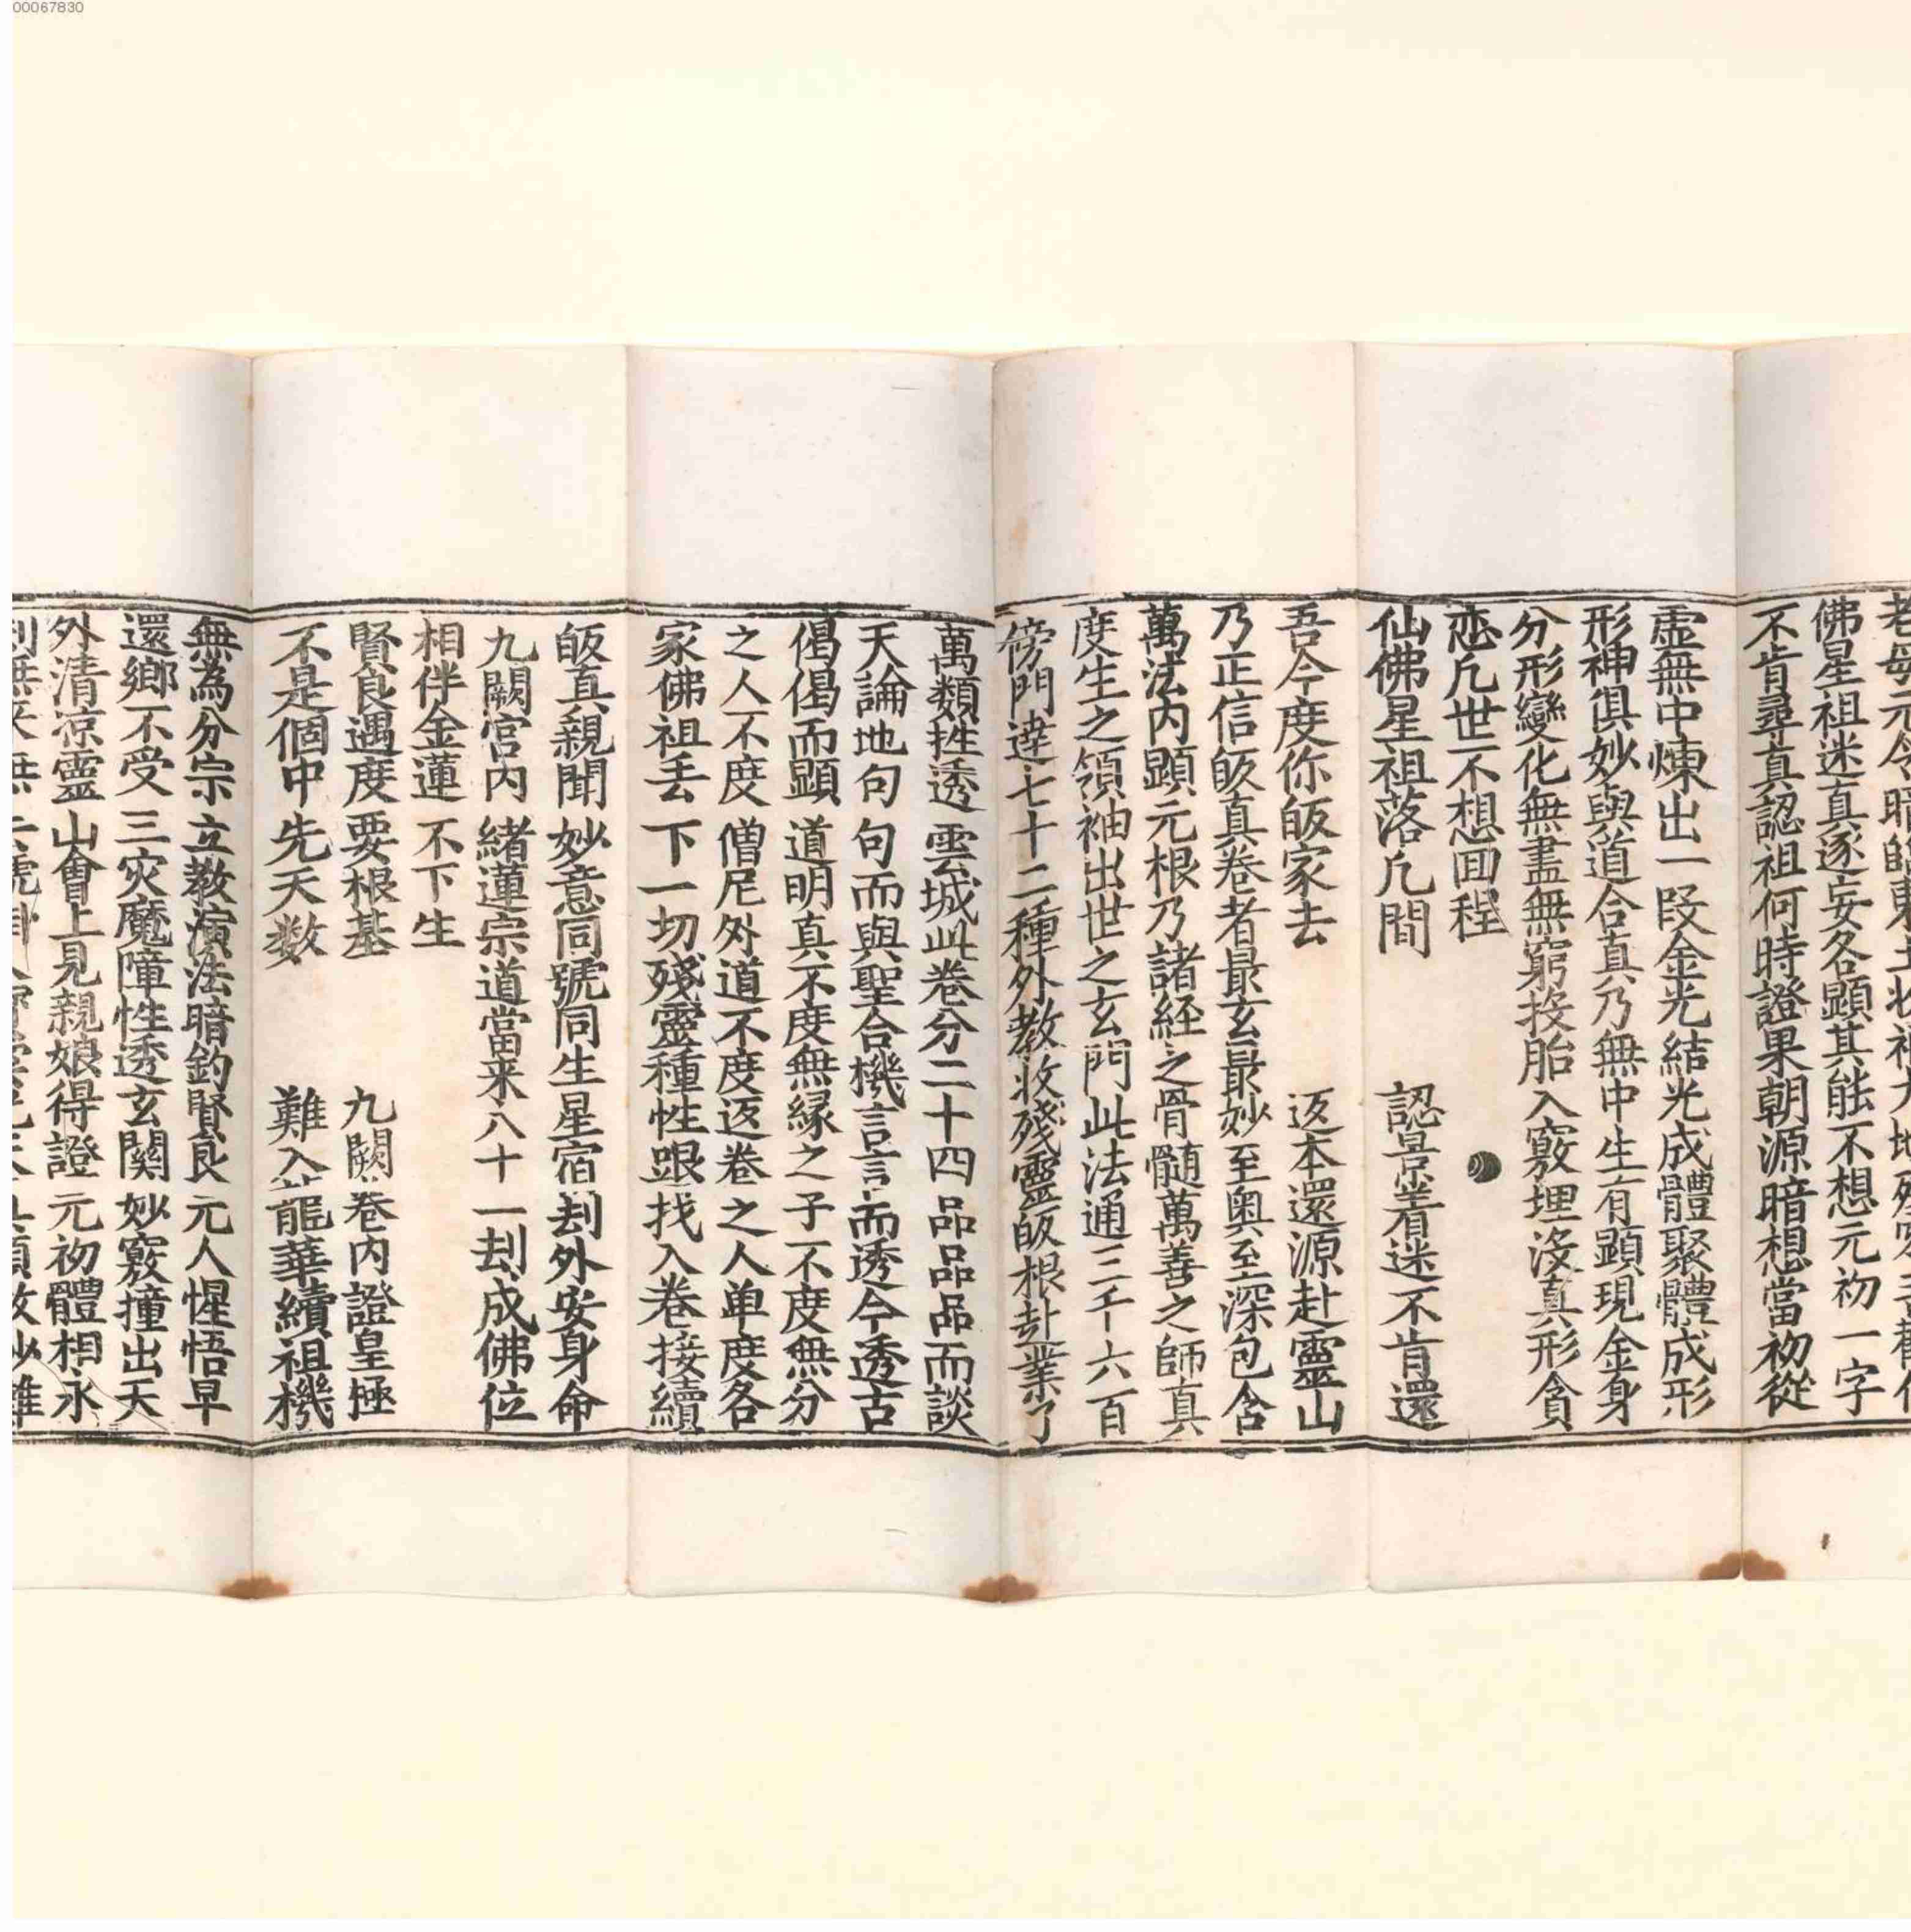 00067830
佛星祖迷真逐妄各顯其能不想元初一字
不肯尋真認祖何時證果朝源暗想當初從
虛無中煉出一段金光結光成體聚體成形
形神俱妙與道合真乃無中生有顯現金身
分形變化無盡無窮投胎入竅埋沒真形貪
恋凡世不想回程
仙佛星祖落凡間 認景着迷不肯還
吾今度你皈家去 返本還源赴靈山
乃正信皈真卷者最玄最妙至奧至深包含
萬法内顯元根乃諸経之骨髓萬善之師真
度生之領袖出世之玄門此法通三千六百
傍門達七十二種外教收殘靈皈根赴業了
萬類挂透雲城此卷分二十四品品品而談
天論地句句而與聖合機言言而透今透古
偈偈而顯道明真不度無緣之子不度無分
之人不度僧尼外道不度返卷之人单度各
家佛祖丢下一切殘靈種性跟找入卷接續
皈真親聞妙意同號同生星宿刦外安身命
九闕宮内緒蓮宗道當来八十一刦成佛位
相伴金蓮不下生
賢良遇度要根基 九闕卷内證皇極
不是個中先天数 難入龍華續祖機
無為分宗立教演法暗釣賢良元人惺悟早
還鄉不受三灾魔障性透玄関妙竅撞出天
外清凉靈山會上見親娘得證元初體相永